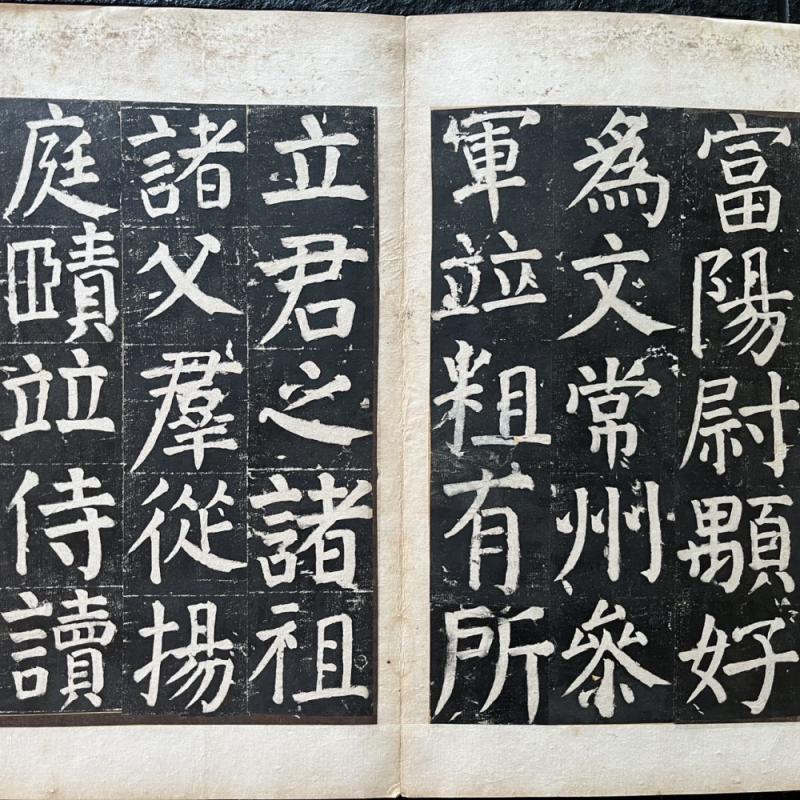 富陽尉顒好
爲文常州叅
軍竝粗有所
立君之諸祖
諸父羣從揚
庭賾竝侍讀